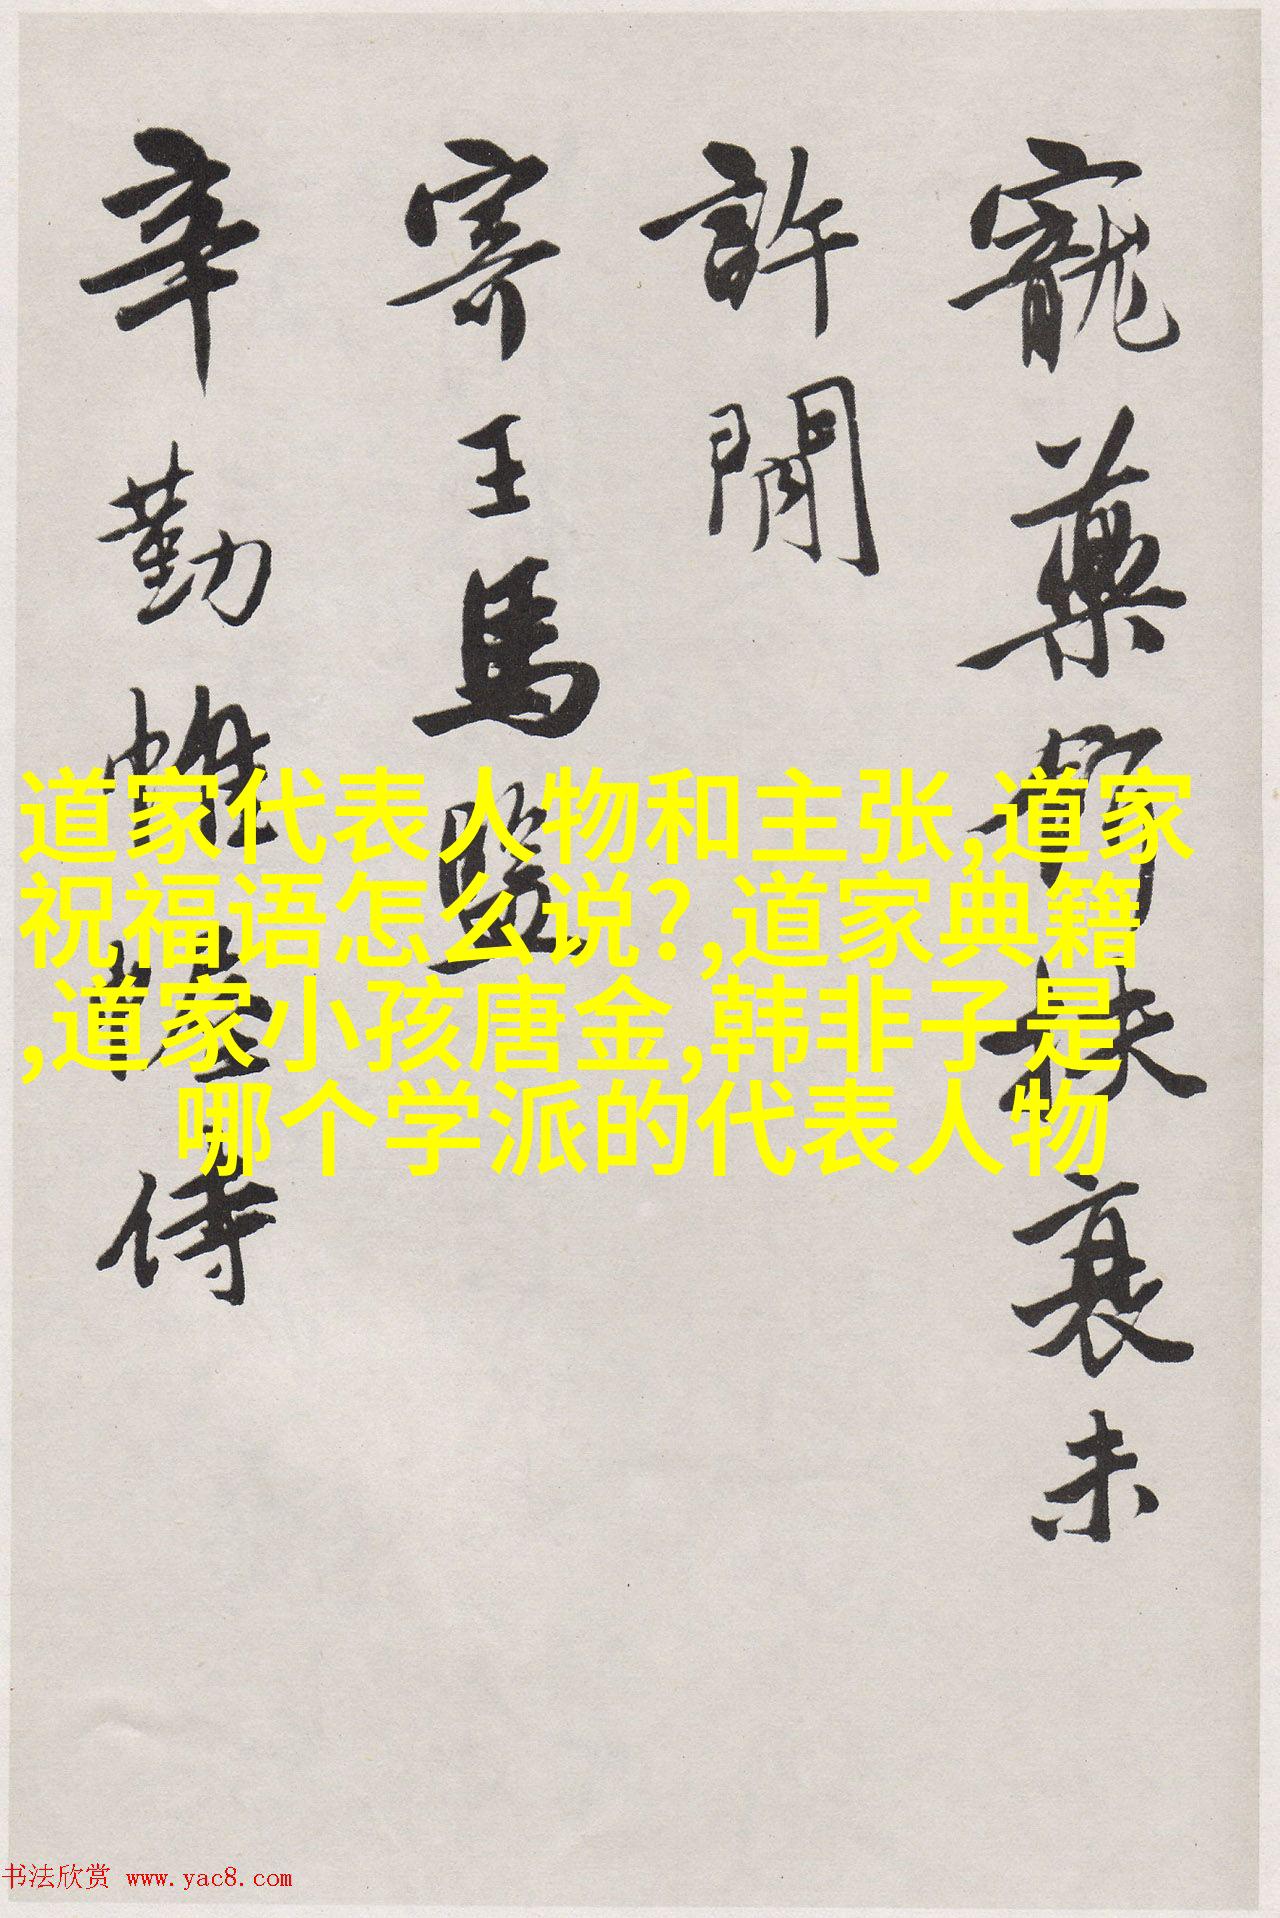 寵藥扶衰未
許閒
寄王馬監
辛勤帷幄侍
道家代表人物和主张,道家
祝福语怎么说?,道家典籍
,道家小孩唐金,韩非子是
哪个学派的代表人物
书法欣赏 www.yac8.com